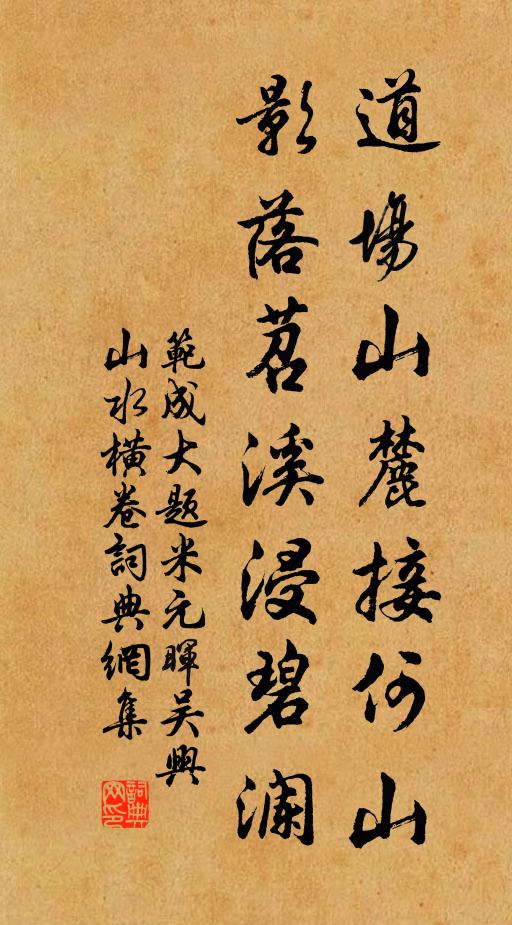 道場山麓接何山
影落苕溪浸碧瀾
範成大題米元暉吴興
山水橫卷詞典網集
詞典网印